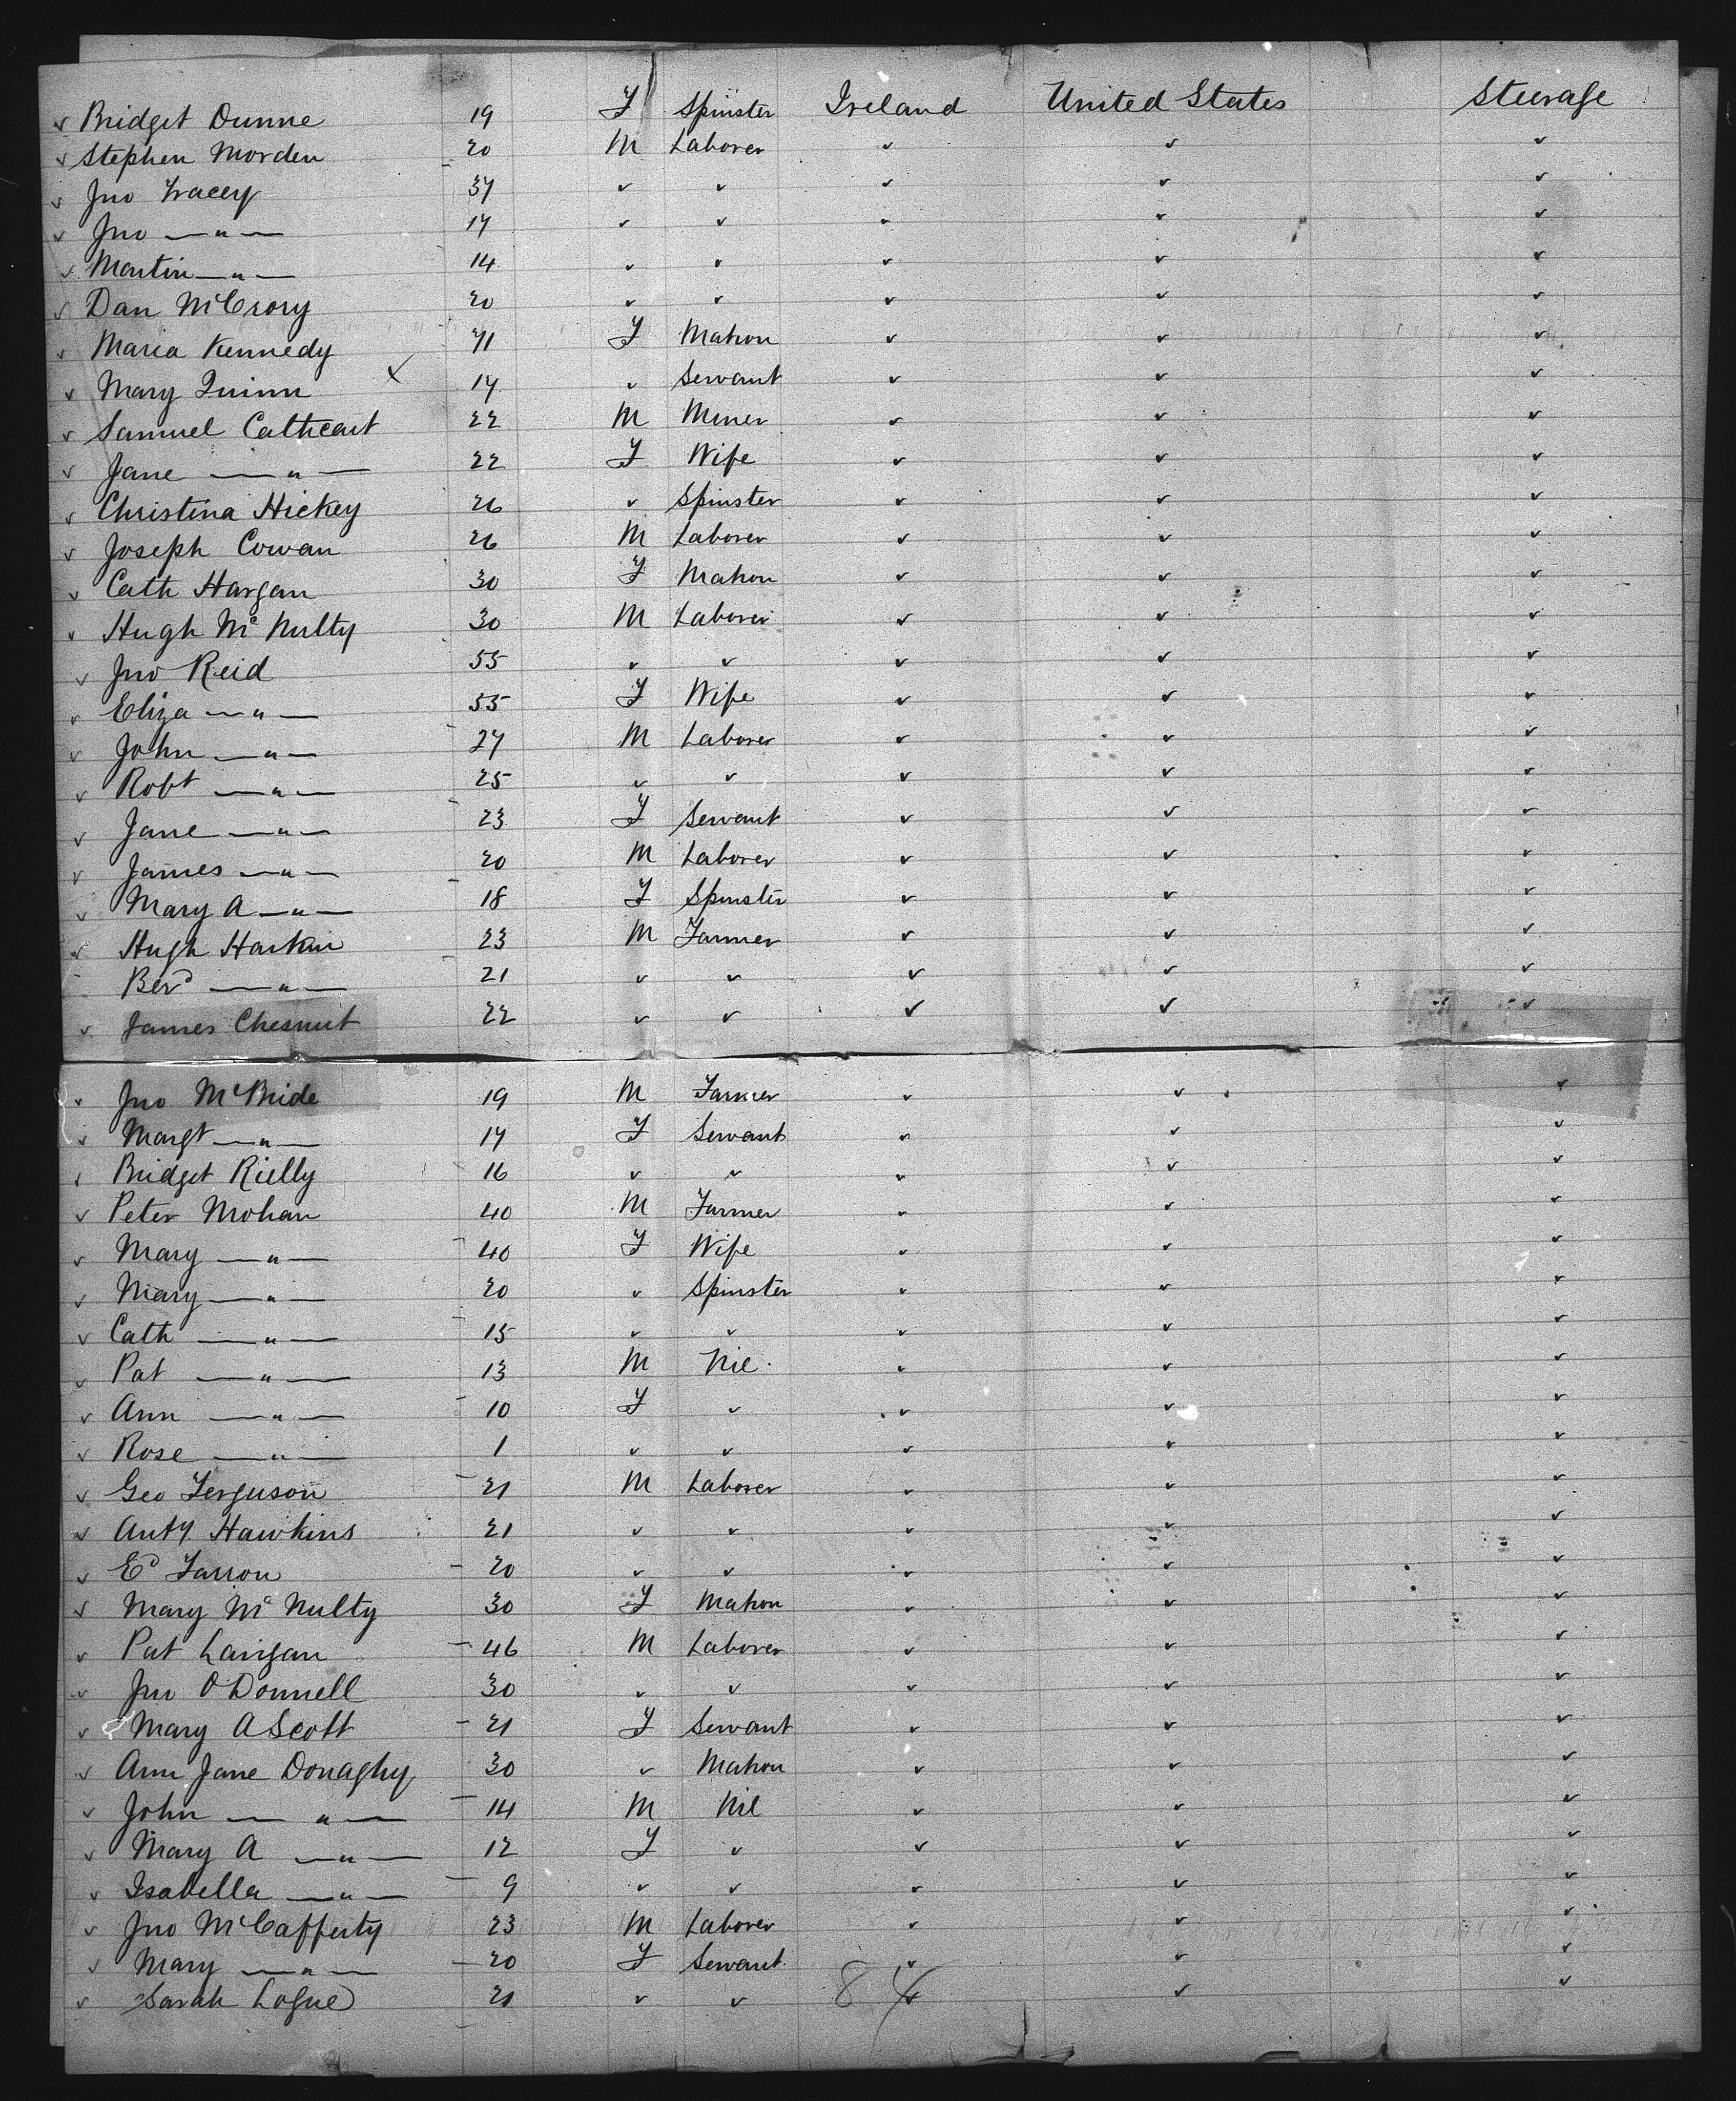 ✓ Bridget Dunne 19 F Spinster Ireland United States Steerage
✓ Stephen Morden 20 M Laborer ✓ ✓ ✓
✓ Jno Tracey 37 ✓ ✓ ✓ ✓ ✓
✓ Jno —"— 17 ✓ ✓ ✓ ✓ ✓
✓ Martin —"— 14 ✓ ✓ ✓ ✓ ✓
✓ Dan McCrory 20 ✓ ✓ ✓ ✓ ✓
✓ Maria Kennedy 71 F Matron ✓ ✓ ✓
✓ Mary Quinn X 17 ✓ Servant ✓ ✓ ✓
✓ Samuel Cathcart 22 M Miner ✓ ✓ ✓
✓ Jane —"— 22 F Wife ✓ ✓ ✓
✓ Christina Hickey 26 ✓ Spinster ✓ ✓ ✓
✓ Joseph Cowan 26 M Laborer ✓ ✓ ✓
✓ Cath Hargan 30 F Matron ✓ ✓ ✓
✓ Hugh McNulty 30 M Laborer ✓ ✓ ✓
✓ Jno Reid 55 ✓ ✓ ✓ ✓ ✓
✓ Eliza —"— 55 F Wife ✓ ✓ ✓
✓ John —"— 27 M Laborer ✓ ✓ ✓
✓ Robt —"— 25 ✓ ✓ ✓ ✓ ✓
✓ Jane —"— 23 F Servant ✓ ✓ ✓
✓ James —"— 20 M Laborer ✓ ✓ ✓
✓ Mary A —"— 18 F Spinster ✓ ✓ ✓
✓ Hugh Harkin 23 M Farmer ✓ ✓ ✓
Berd —"— 21 ✓ ✓ ✓ ✓ ✓
✓ James Chesnut 22 ✓ ✓ ✓ ✓ ✓
✓ Jno McBride 19 M Farmer ✓ ✓ ✓
✓ Margt —"— 17 F Servant ✓ ✓ ✓
✓ Bridget Rielly 16 ✓ ✓ ✓ ✓ ✓
✓ Peter Mohan 40 M Farmer ✓ ✓ ✓
✓ Mary —"— 40 F Wife ✓ ✓ ✓
✓ Mary —"— 20 ✓ Spinster ✓ ✓ ✓
✓ Cath —"— 15 ✓ ✓ ✓ ✓ ✓
✓ Pat —"— 13 M Nil ✓ ✓ ✓
✓ Ann —"— 10 F ✓ ✓ ✓ ✓
✓ Rose —"— 1 ✓ ✓ ✓ ✓ ✓
✓ Geo Ferguson 21 M Laborer ✓ ✓ ✓
✓ Anty Hawkins 21 ✓ ✓ ✓ ✓ ✓
✓ Ed Farron 20 ✓ ✓ ✓ ✓ ✓
✓ Mary McNulty 30 F Matron ✓ ✓ ✓
✓ Pat Lanigan 46 M Laborer ✓ ✓ ✓
✓ Jno O'Donnell 30 ✓ ✓ ✓ ✓ ✓
✓ Mary A Scott 21 F Servant ✓ ✓ ✓
✓ Ann Jane Donaghy 30 ✓ Matron ✓ ✓ ✓
✓ John —"— 14 M Nil ✓ ✓ ✓
✓ Mary A —"— 12 F ✓ ✓ ✓ ✓
✓ Isabella —"— 9 ✓ ✓ ✓ ✓ ✓
✓ Jno McCafferty 23 M Laborer ✓ ✓ ✓
✓ Mary —"— 20 F Servant ✓ ✓ ✓
✓ Sarah Logue 21 ✓ ✓ ✓ ✓ ✓
84